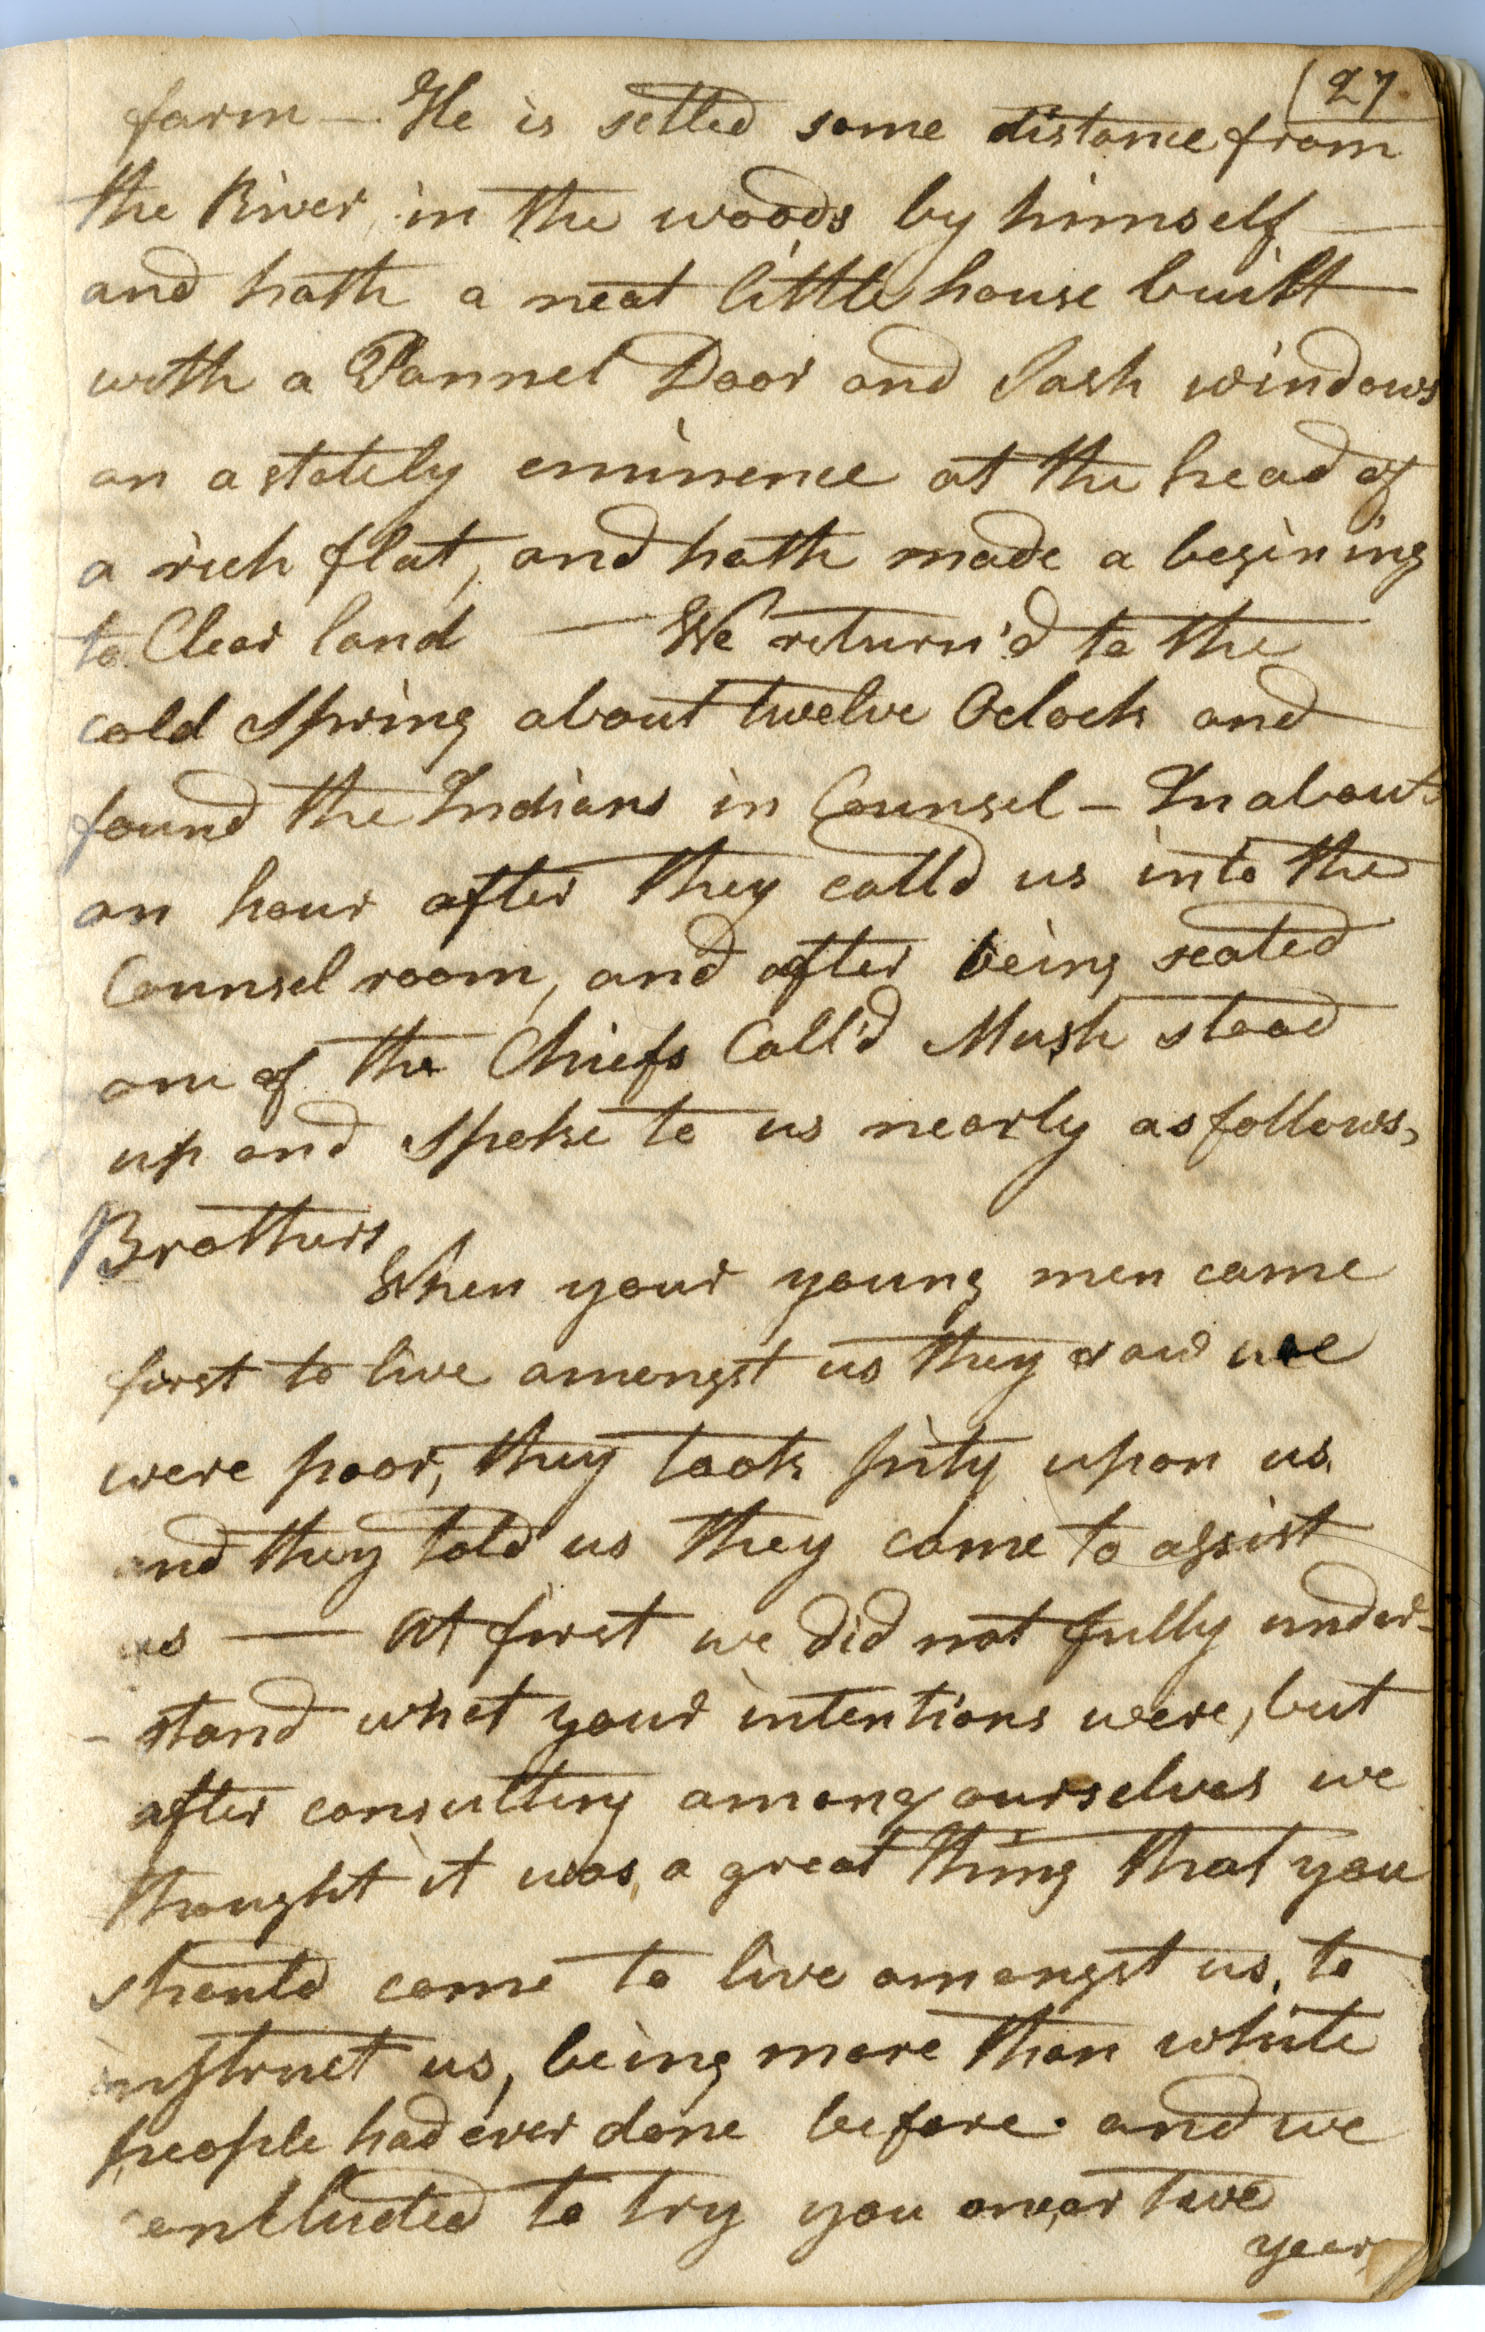 27
farm — He is setled some distance from
the River in the woods by himself —
and hath a neat little house built —
with a Pannel Door and Sash windows
on a stately eminence at the head of
a rich flat, and hath made a begining
to Clear land — We return'd to the
cold Spring about twelve Oclock and
found the Indians in Counsel – In about
an hour after they calld us into the
Counsel room, and after being seated
one of the Chiefs Call'd Mush stood
up and Spoke to us nearly as follows,
Brothers
When your young men came
first to live amongst us they saw we
were poor, they took pity upon us
and they told us they come to assist
us — At first we did not fully under-
- stand what your intentions were, but
after consulting among ourselves we
thought it was a great thing that you
should come to live amongst us, to
instruct us, being more than white
people had ever done before. and we
concluded to try you one, or two
years